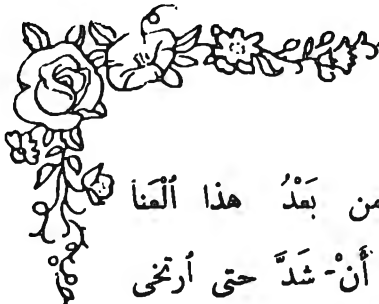 من بَعْدُ هذا ٱلْعَنا
أَنْ شَدَّ حتى ٱرتخى